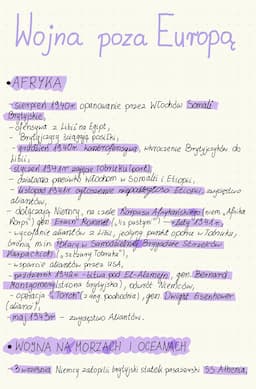 Wojna poza Europą
• AFRYKA
- sierpień 1940r. opanowanie przez Włochów Somali
Brytyjskie,
- ofensywa z Libii na Egipt,
- Brytyjczycy ściągają posiłki,
- grudzień 1940r. kontrofensywa, wkroczenie Brytyjczyków do
Libii,
- styczeń 1941r. zajęcie Tobruku (port)
- działania przeciw Włochom w Somalii i Etiopii,
- listopad 1941r. ogłoszenie niepodległości Etiopii, zwycięstwo
aliantów,
- dołączają Niemcy, na czele Korpusu Afrykańskiego (niem. „Afrika
Korps") gen. Erwin Rommel („lis pustyni") - luty 1941r.
- wycofanie aliantów z Libii, jedyny punkt oporu w Tobruku,
bronią m.in. Polacy w Samodzielnej Brygadzie Strzelców
Karpackich („szczury Tobruku"),
- wsparcie aliantów przez USA,
- październik 1942r. - bitwa pod El-Alamejn, gen. Bernard
Montgomery (strona brytyjska), odwrót Niemców,
- operacja „Torch" (z ang. pochodnia), gen. Dwight Eisenhower
(alianci),
- maj 1943r. - zwycięstwo Aliantów.
• WOJNA NA MORZACH I OCEANACH
- 3 września Niemcy zatopili brytyjski statek pasażerski SS Athenia,